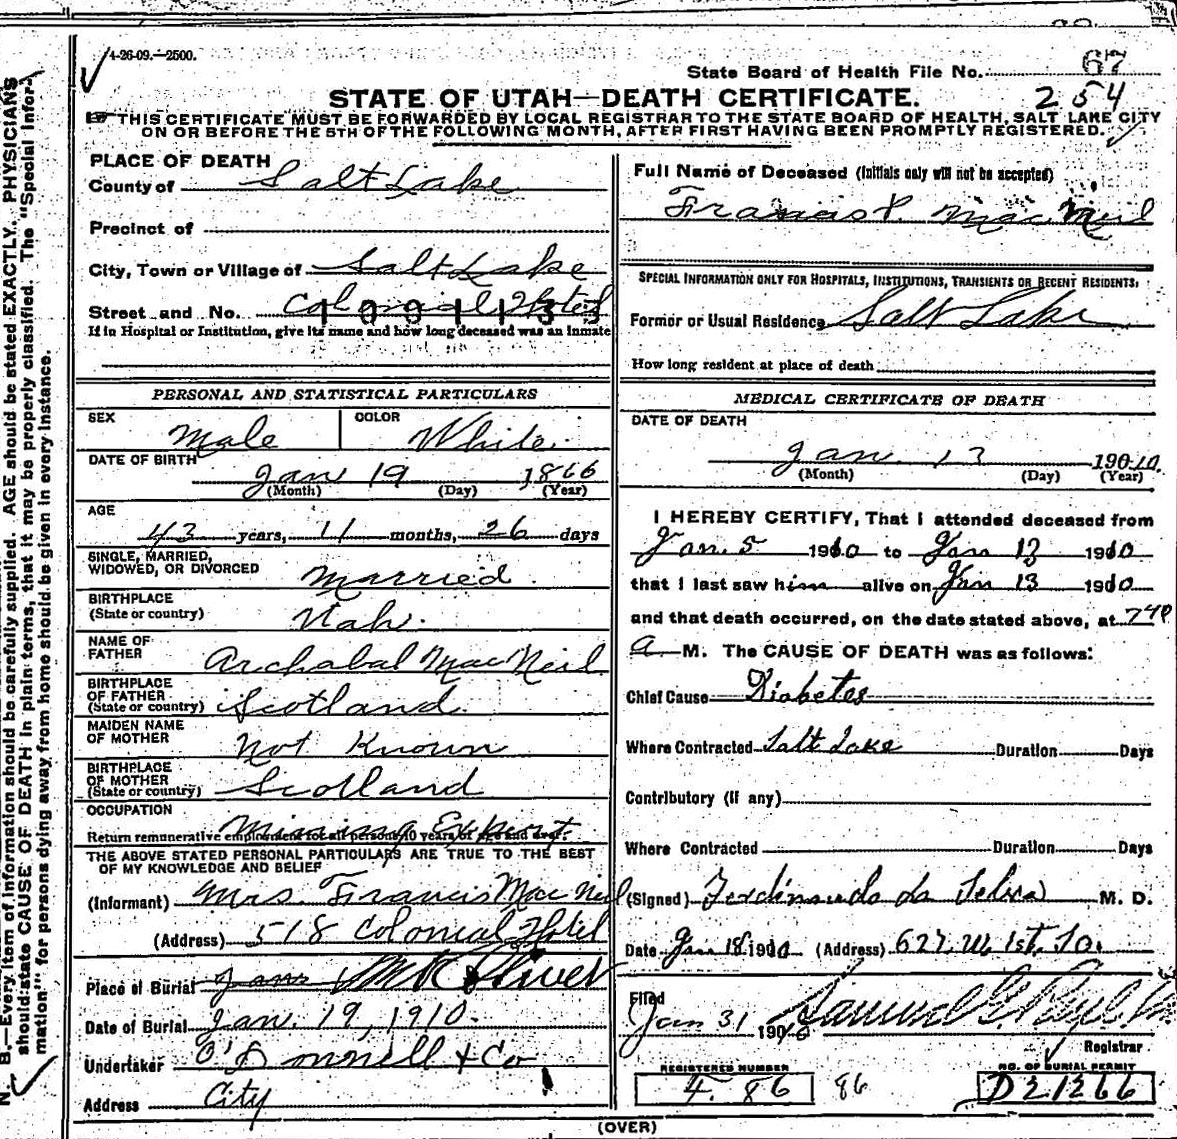 4-26-09.—2500.
State Board of Health File No. 67
254
STATE OF UTAH—DEATH CERTIFICATE.
THIS CERTIFICATE MUST BE FORWARDED BY LOCAL REGISTRAR TO THE STATE BOARD OF HEALTH, SALT LAKE CITY
ON OR BEFORE THE 5TH OF THE FOLLOWING MONTH, AFTER FIRST HAVING BEEN PROMPTLY REGISTERED.
PLACE OF DEATH
County of Salt Lake
Precinct of
City, Town or Village of Salt Lake
Street and No. Colonial Hotel
If in Hospital or Institution, give its name and how long deceased was an inmate
PERSONAL AND STATISTICAL PARTICULARS
SEX Male COLOR White
DATE OF BIRTH Jan 19 1866
(Month) (Day) (Year)
AGE
43 years, 11 months, 26 days
SINGLE, MARRIED,
WIDOWED, OR DIVORCED Married
BIRTHPLACE
(State or country) Utah.
NAME OF
FATHER Archabal MacNeil
BIRTHPLACE
OF FATHER
(State or country) Scotland
MAIDEN NAME
OF MOTHER Not Known
BIRTHPLACE
OF MOTHER
(State or country) Scotland
OCCUPATION Mining Expert
Return remunerative employment for all persons 10 years of age and over.
THE ABOVE STATED PERSONAL PARTICULARS ARE TRUE TO THE BEST
OF MY KNOWLEDGE AND BELIEF
(Informant) Mrs. Francis MacNeil
(Address) 518 Colonial Hotel
Place of Burial Mt Oliver
Date of Burial Jan. 19, 1910.
Undertaker O'Donnell & Co
Address City
Full Name of Deceased (Initials only will not be accepted)
Francis P. MacNeil
SPECIAL INFORMATION ONLY FOR HOSPITALS, INSTITUTIONS, TRANSIENTS OR RECENT RESIDENTS.
Former or Usual Residence Salt Lake
How long resident at place of death
MEDICAL CERTIFICATE OF DEATH
DATE OF DEATH
Jan. 13 1910.
(Month) (Day) (Year)
I HEREBY CERTIFY, That I attended deceased from
Jan. 5 1910 to Jan 13 1910
that I last saw him alive on Jan 13 1910
and that death occurred, on the date stated above, at
a. M. The CAUSE OF DEATH was as follows:
Chief Cause Diabetes
Where Contracted Salt Lake Duration Days
Contributory (if any)
Where Contracted Duration Days
(Signed) M. D.
Date Jan 18 1910 (Address) 627 W 1st. So.
Filed
Jan 31 1910 Samuel G. Paul
Registrar
REGISTERED NUMBER NO. OF BURIAL PERMIT
4. 86 86 D21266
(OVER)
N. B.—Every item of information should be carefully supplied. AGE should be stated EXACTLY. PHYSICIANS
should state CAUSE OF DEATH in plain terms, that it may be properly classified. The "Special Infor-
mation" for persons dying away from home should be given in every instance.